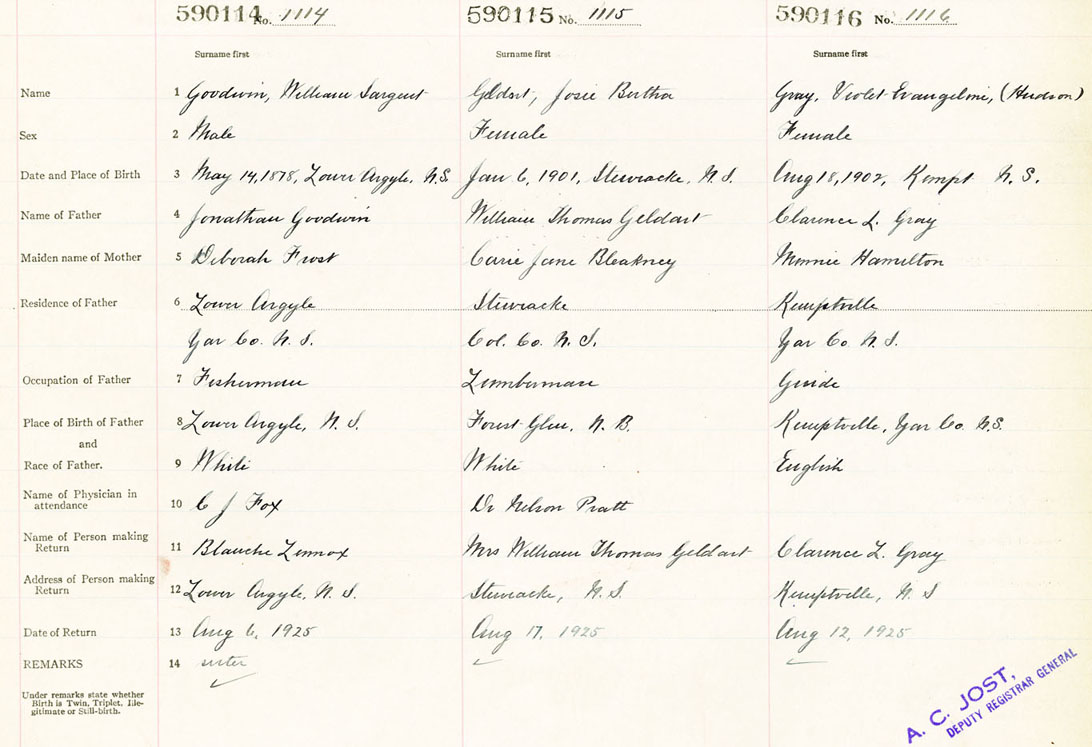 590114 No. 1114 590115 No. 1115 590116 No. 1116
Surname first Surname first Surname first
Name 1 Goodwin, William Sargent Geldart, Josie Bertha Gray, Violet Evangeline, (Hudson)
Sex 2 Male Female Female
Date and Place of Birth 3 May 14, 1878, Lower Argyle, N.S. Jan 6, 1901, Stewiacke, N.S. Aug 18, 1902, Kempt N.S.
Name of Father 4 Jonathan Goodwin William Thomas Geldart Clarence L. Gray
Maiden name of Mother 5 Deborah Frost Carie Jane Bleakney Minnie Hamilton
Residence of Father 6 Lower Argyle Stewiacke Kemptville
Yar Co. N.S. Col. Co. N.S. Yar Co N.S.
Occupation of Father 7 Fisherman Lumberman Guide
Place of Birth of Father 8 Lower Argyle, N.S. Forest Glen, N.B. Kemptville, Yar Co. N.S.
and
Race of Father. 9 White White English
Name of Physician in
attendance 10 C J Fox Dr Nelson Pratt
Name of Person making
Return 11 Blanche Lennox Mrs William Thomas Geldart Clarence L. Gray
Address of Person making
Return 12 Lower Argyle, N.S. Stewiacke, N.S. Kemptville, N.S
Date of Return 13 Aug 6, 1925 Aug 17, 1925 Aug 12, 1925
REMARKS 14 sister
Under remarks state whether
Birth is Twin, Triplet, Ille-
gitimate or Still-birth.
A. C. JOST,
DEPUTY REGISTRAR GENERAL